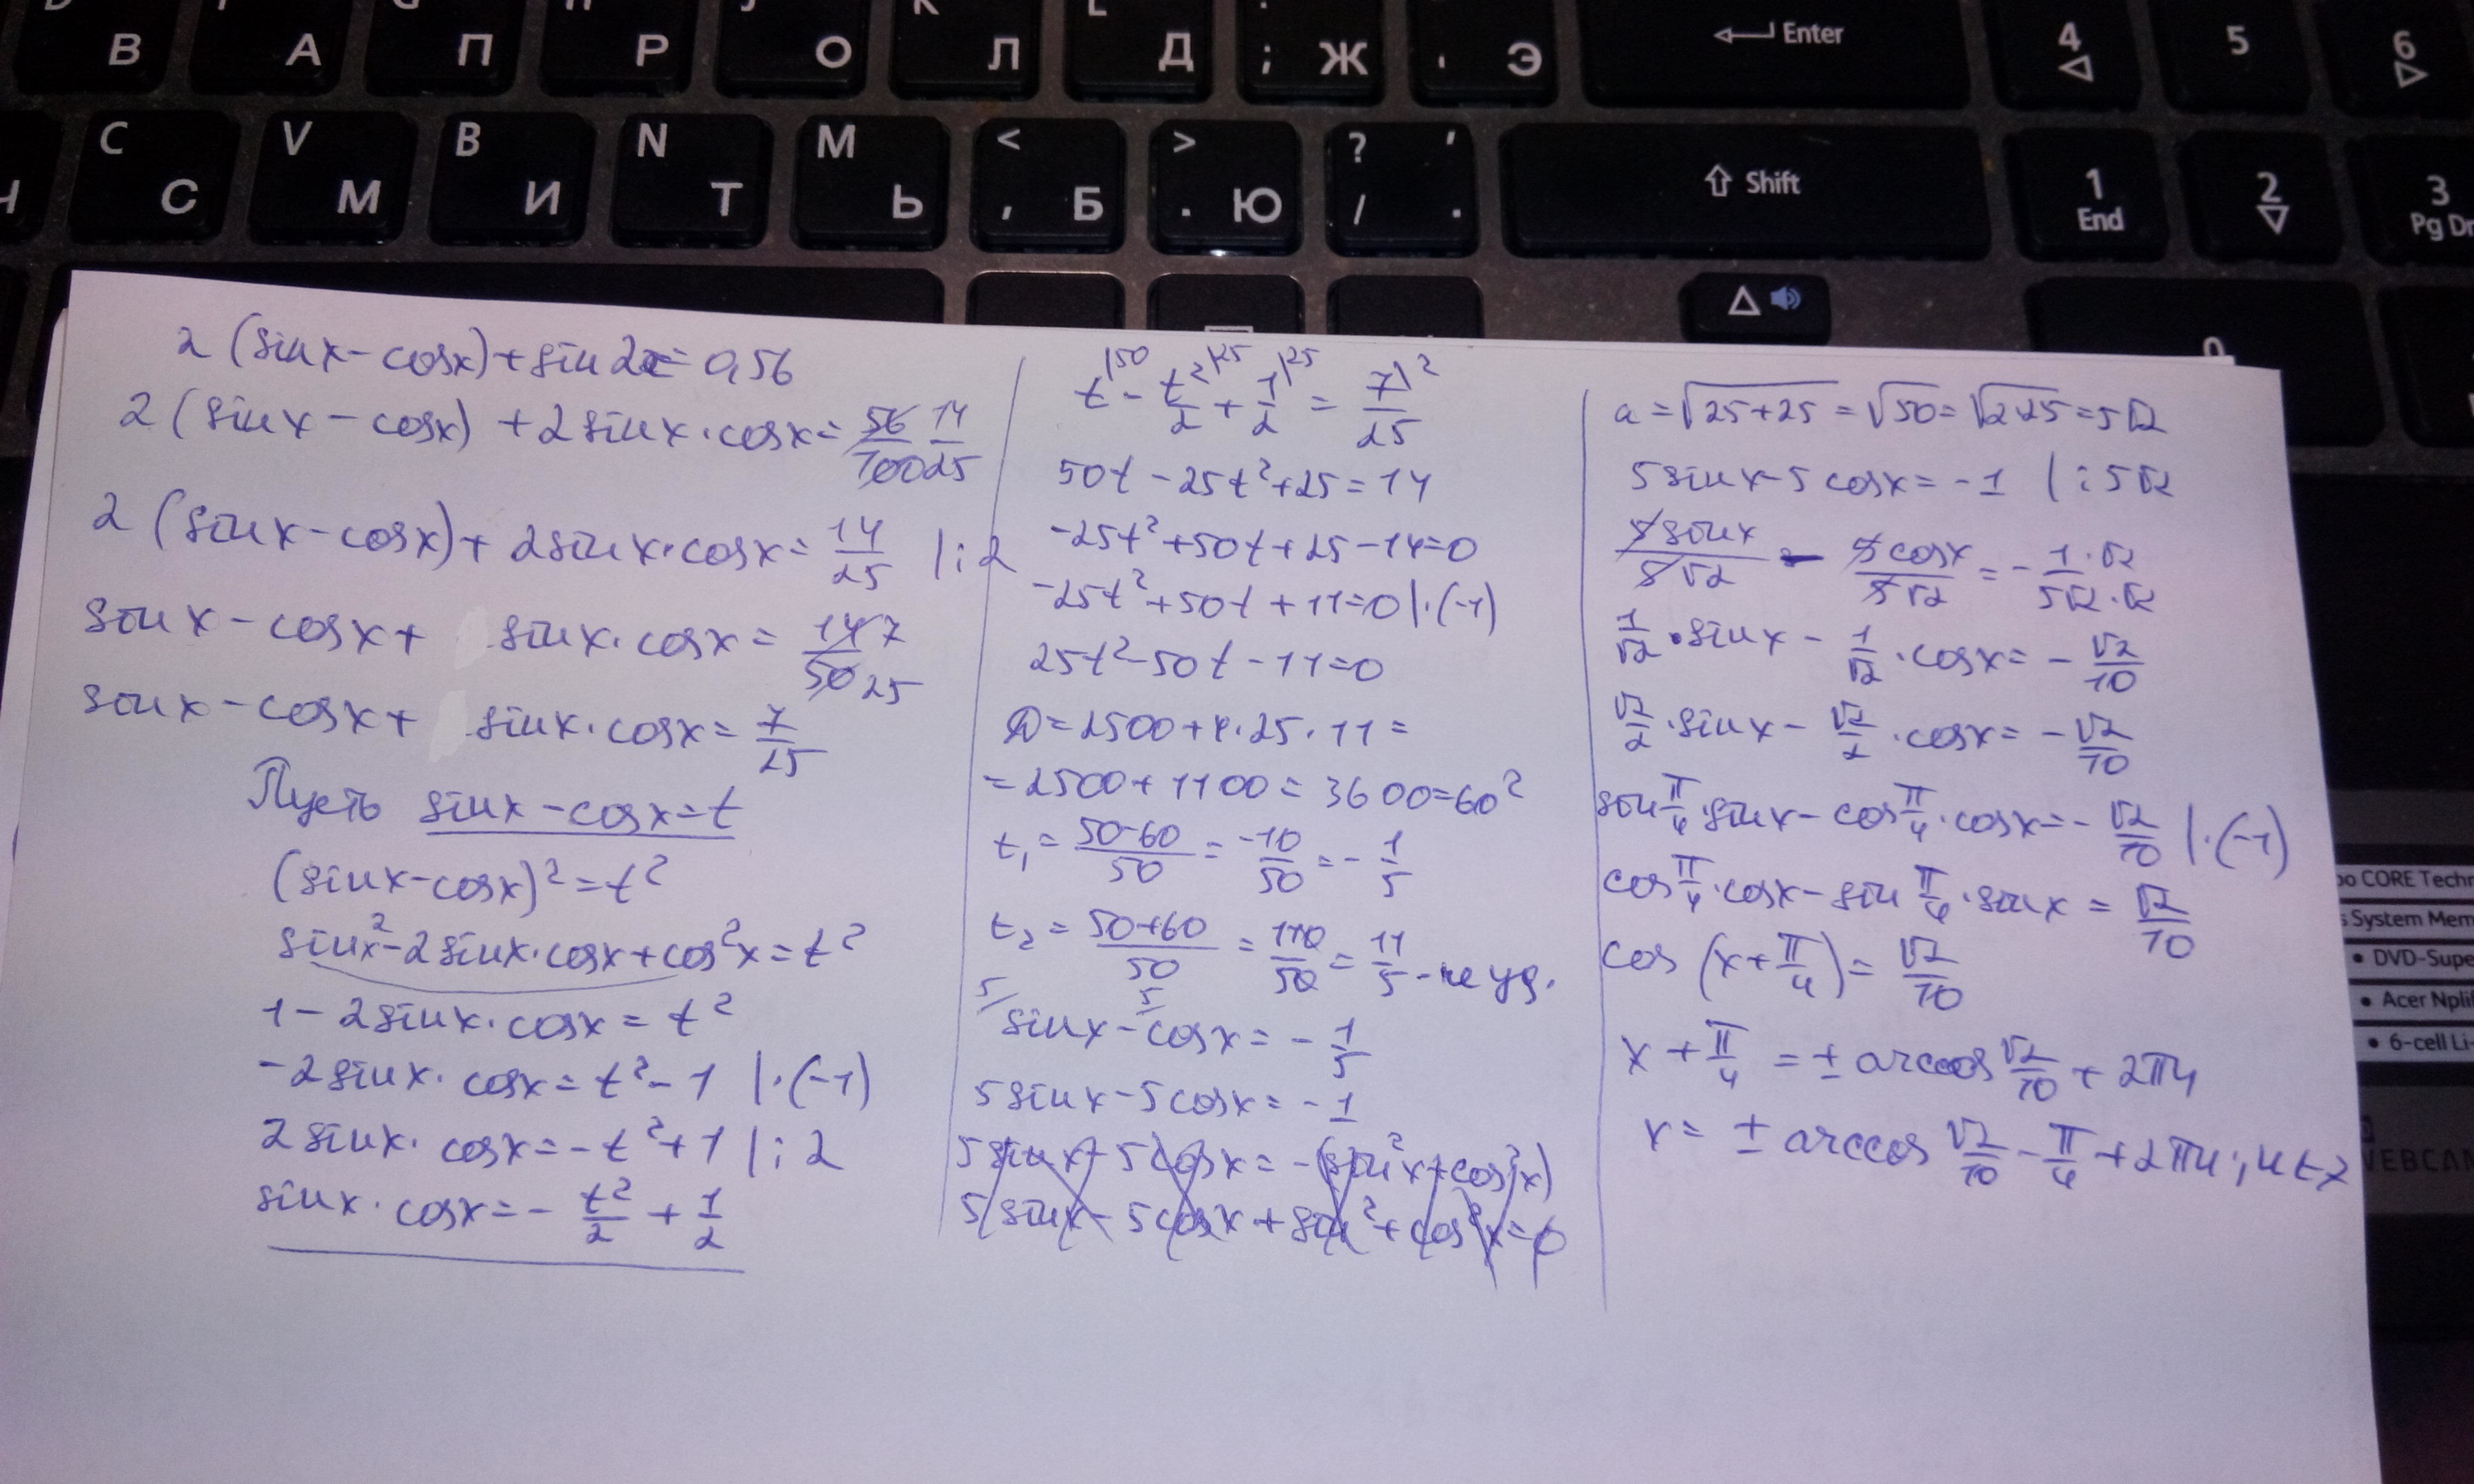 В А П Р О К Л L Д ; Ж ' Э Enter 4 5 6
C С V М B И N Т M Ь < , Б > . Ю ? / ' . Shift 1 End 2 3 Pg Dn
0
2 (sinx - cosx) + sin2x = 0,56
2 (sinx - cosx) + 2sinx·cosx = 56/100 14/25
2 (sinx - cosx) + 2sinx·cosx = 14/25 |:2
sinx - cosx + sinx·cosx = 14/50 7/25
sinx - cosx + sinx·cosx = 7/25
Пусть sinx - cosx = t
(sinx - cosx)² = t²
sinx² - 2sinx·cosx + cos²x = t²
1 - 2sinx·cosx = t²
-2sinx·cosx = t² - 1 |·(-1)
2sinx·cosx = -t² + 1 |:2
sinx·cosx = -t²/2 + 1/2
t|50 - t²/2|25 + 1/2|25 = 7/25|2
50t - 25t² + 25 = 14
-25t² + 50t + 25 - 14 = 0
-25t² + 50t + 11 = 0 |·(-1)
25t² - 50t - 11 = 0
D = 2500 + 4·25·11 =
= 2500 + 1100 = 3600 = 60²
t₁ = 50-60/50 = -10/50 = -1/5
t₂ = 50+60/50 = 110/50 = 11/5 - не уд.
5/ sinx - 5/ cosx = -1/5
5sinx - 5cosx = -1
5sinx - 5cosx = -(sin²x + cos²x)
5sinx - 5cosx + sin² + cos²x = 0
a = √25+25 = √50 = √2·25 = 5√2
5sinx - 5cosx = -1 |:5√2
5sinx/5√2 - 5cosx/5√2 = -1·√2/5√2·√2
1/√2·sinx - 1/√2·cosx = -√2/10
√2/2·sinx - √2/2·cosx = -√2/10
sin π/4·sinx - cos π/4·cosx = -√2/10 |·(-1)
cos π/4·cosx - sin π/4·sinx = √2/10
cos (x + π/4) = √2/10
x + π/4 = ± arccos √2/10 + 2πn
x = ± arccos √2/10 - π/4 + 2πn; n ∈ Z
CORE Techn
System Mem
• DVD-Supe
• Acer Nplif
• 6-cell Li-
WEBCAM